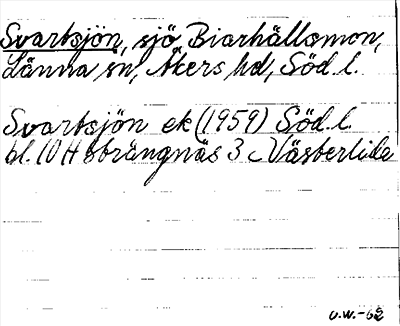 Svartsjön, sjö Biarhällsmon,
Länna sn, Åkers hd, Söd. l.
Svartsjön ek (1959) Söd. l.
bl. 10 H Strängnäs 3 c Västerlida
U.W.-62